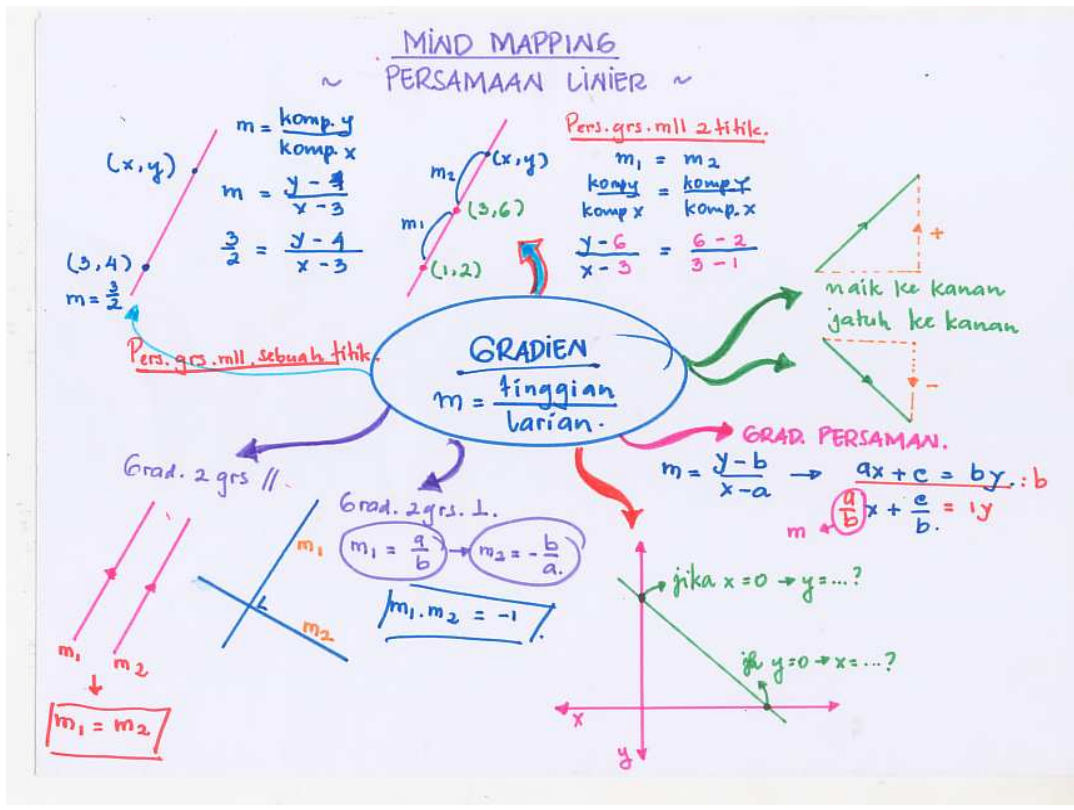 MIND MAPPING
~ PERSAMAAN LINIER ~
(x,y)
m = komp. y / komp. x
m = y - 4 / x - 3
3/2 = y - 4 / x - 3
(3,4)
m = 3/2
Pers. grs. mll. sebuah titik.
m2
(x,y)
(3,6)
m1
(1,2)
Pers. grs. mll 2 titik.
m1 = m2
komp y / komp x = komp Y / komp. x
y - 6 / x - 3 = 6 - 2 / 3 - 1
+
naik ke kanan
jatuh ke kanan
-
GRADIEN
m = tinggian / larian.
GRAD. PERSAMAN.
m = y - b / x - a → ax + c = by. : b
a/b x + c/b. = 1y
m
Grad. 2 grs //
m1
m2
m1 = m2
Grad. 2 grs. ⊥.
m1 = a/b → m2 = - b/a.
m1 . m2 = -1
m1
m2
jika x = 0 → y = ...?
jk y = 0 → x = ...?
x
y